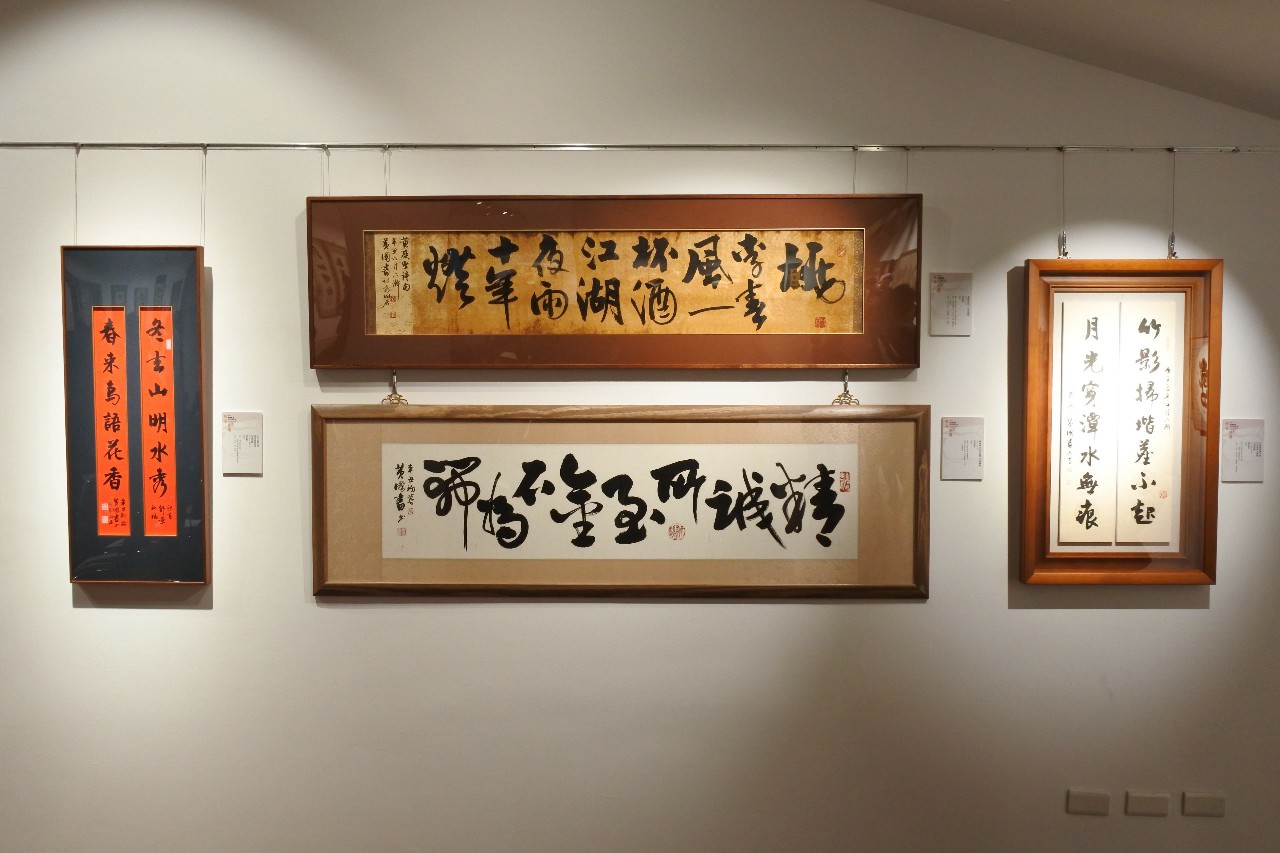 冬去山明水秀
春来鳥語花香
桃
李春
風一
杯酒
江湖
夜雨
十年
燈
黃庭堅詩句
精誠所至金石為開
竹影掃堦塵不起
月光穿潭水無痕